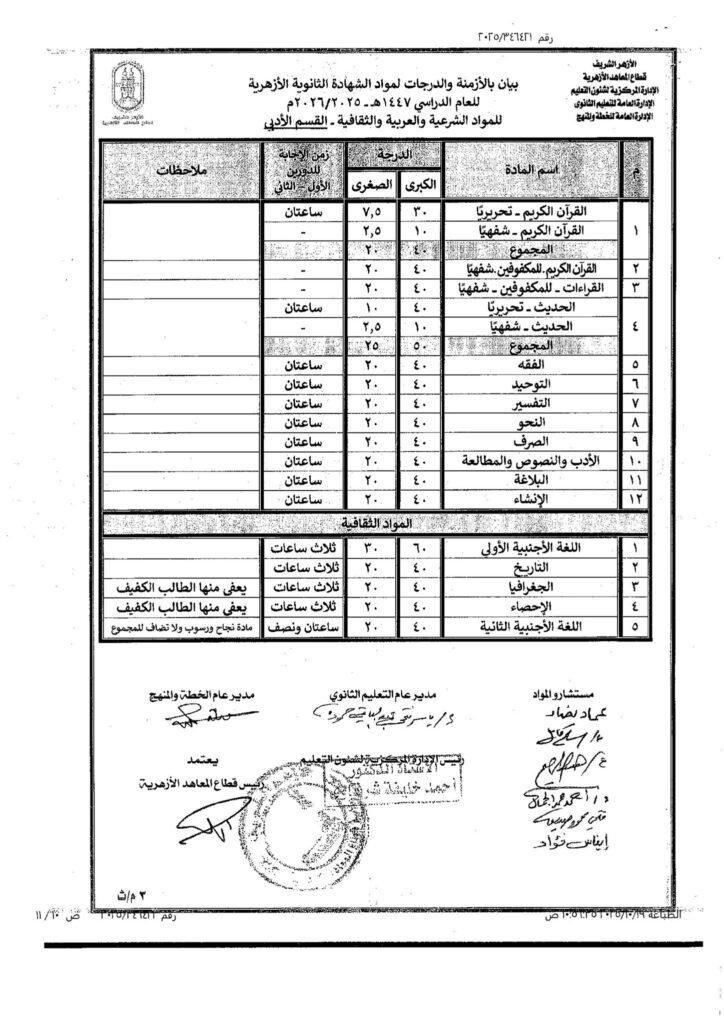 رقم ٢٠٢٥/٣٤٦٤٢١
الأزهر الشريف
قطاع المعاهد الأزهرية
الإدارة المركزية لشئون التعليم
الإدارة العامة للتعليم الثانوى
الإدارة العامة للخطة والمنهج
بيان بالأزمنة والدرجات لمواد الشهادة الثانوية الأزهرية
للعام الدراسي ١٤٤٧هـ - ٢٠٢٥/٢٠٢٦م
للمواد الشرعية والعربية والثقافية - القسم الأدبي
م اسم المادة الدرجة زمن الإجابة للدورين الأول - الثاني ملاحظات
الكبرى الصغرى
١ القرآن الكريم - تحريريًا ٣٠ ٧,٥ ساعتان
القرآن الكريم - شفهيًا ١٠ ٢,٥ -
المجموع ٤٠ ٢٠
٢ القرآن الكريم. للمكفوفين. شفهيًا ٤٠ ٢٠ -
٣ القراءات - للمكفوفين - شفهيًا ٤٠ ٢٠ -
٤ الحديث - تحريريًا ٤٠ ١٠ ساعتان
الحديث - شفهيًا ١٠ ٢,٥ -
المجموع ٥٠ ٢٥
٥ الفقه ٤٠ ٢٠ ساعتان
٦ التوحيد ٤٠ ٢٠ ساعتان
٧ التفسير ٤٠ ٢٠ ساعتان
٨ النحو ٤٠ ٢٠ ساعتان
٩ الصرف ٤٠ ٢٠ ساعتان
١٠ الأدب والنصوص والمطالعة ٤٠ ٢٠ ساعتان
١١ البلاغة ٤٠ ٢٠ ساعتان
١٢ الإنشاء ٤٠ ٢٠ ساعتان
المواد الثقافية
١ اللغة الأجنبية الأولي ٦٠ ٣٠ ثلاث ساعات
٢ التاريخ ٤٠ ٢٠ ثلاث ساعات
٣ الجغرافيا ٤٠ ٢٠ ثلاث ساعات يعفى منها الطالب الكفيف
٤ الإحصاء ٤٠ ٢٠ ثلاث ساعات يعفى منها الطالب الكفيف
٥ اللغة الأجنبية الثانية ٤٠ ٢٠ ساعتان ونصف مادة نجاح ورسوب ولا تضاف للمجموع
مستشارو المواد
مدير عام التعليم الثانوي
مدير عام الخطة والمنهج
رئيس الإدارة المركزية لشئون التعليم
الأستاذ الدكتور
أحمد خليفة
يعتمد
رئيس قطاع المعاهد الأزهرية
إيناس فؤاد
٢ م/ث
رقم ٢٠٢٥/٣٤٦٤٢١